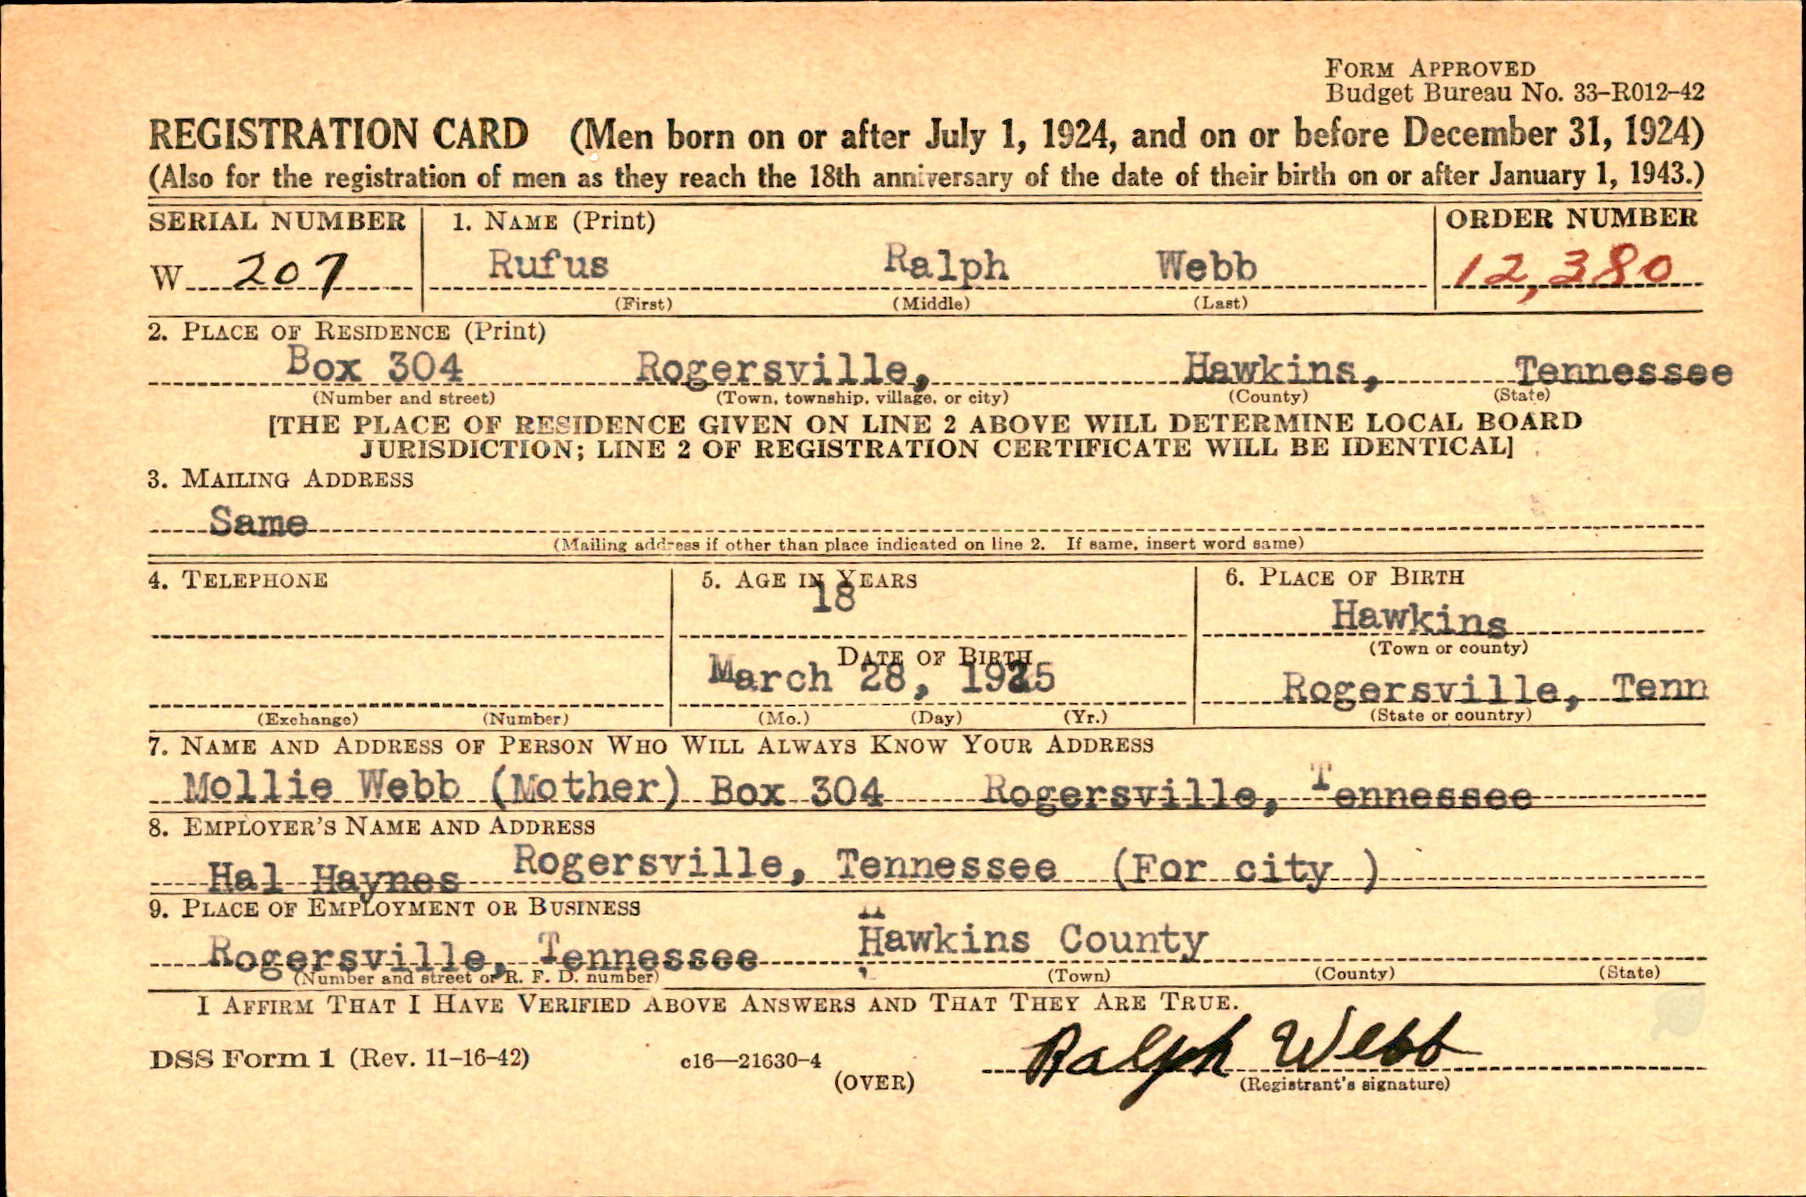 FORM APPROVED
Budget Bureau No. 33-R012-42
REGISTRATION CARD (Men born on or after July 1, 1924, and on or before December 31, 1924)
(Also for the registration of men as they reach the 18th anniversary of the date of their birth on or after January 1, 1943.)
SERIAL NUMBER 1. NAME (Print) ORDER NUMBER
W 207 Rufus Ralph Webb 12,380
(First) (Middle) (Last)
2. PLACE OF RESIDENCE (Print)
Box 304 Rogersville, Hawkins, Tennessee
(Number and street) (Town, township, village, or city) (County) (State)
[THE PLACE OF RESIDENCE GIVEN ON LINE 2 ABOVE WILL DETERMINE LOCAL BOARD
JURISDICTION; LINE 2 OF REGISTRATION CERTIFICATE WILL BE IDENTICAL]
3. MAILING ADDRESS
Same
(Mailing address if other than place indicated on line 2. If same, insert word same)
4. TELEPHONE 5. AGE IN YEARS 6. PLACE OF BIRTH
18
Hawkins
(Town or county)
DATE OF BIRTH
March 28, 1925 Rogersville, Tenn
(Exchange) (Number) (Mo.) (Day) (Yr.) (State or country)
7. NAME AND ADDRESS OF PERSON WHO WILL ALWAYS KNOW YOUR ADDRESS
Mollie Webb (Mother) Box 304 Rogersville, Tennessee
8. EMPLOYER'S NAME AND ADDRESS
Hal Haynes Rogersville, Tennessee (For city )
9. PLACE OF EMPLOYMENT OR BUSINESS
Rogersville, Tennessee Hawkins County
(Number and street or R. F. D. number) (Town) (County) (State)
I AFFIRM THAT I HAVE VERIFIED ABOVE ANSWERS AND THAT THEY ARE TRUE.
DSS Form 1 (Rev. 11-16-42) c16—21630-4 Ralph Webb
(OVER) (Registrant's signature)